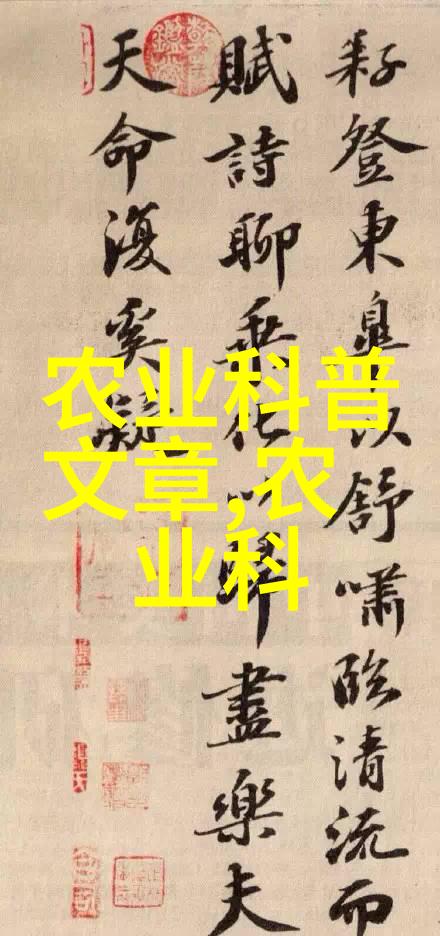 耔登東皋以舒嘯臨清流而
賦詩聊乘化以歸盡樂夫
天命復奚疑
农业科普
文章,农
业科